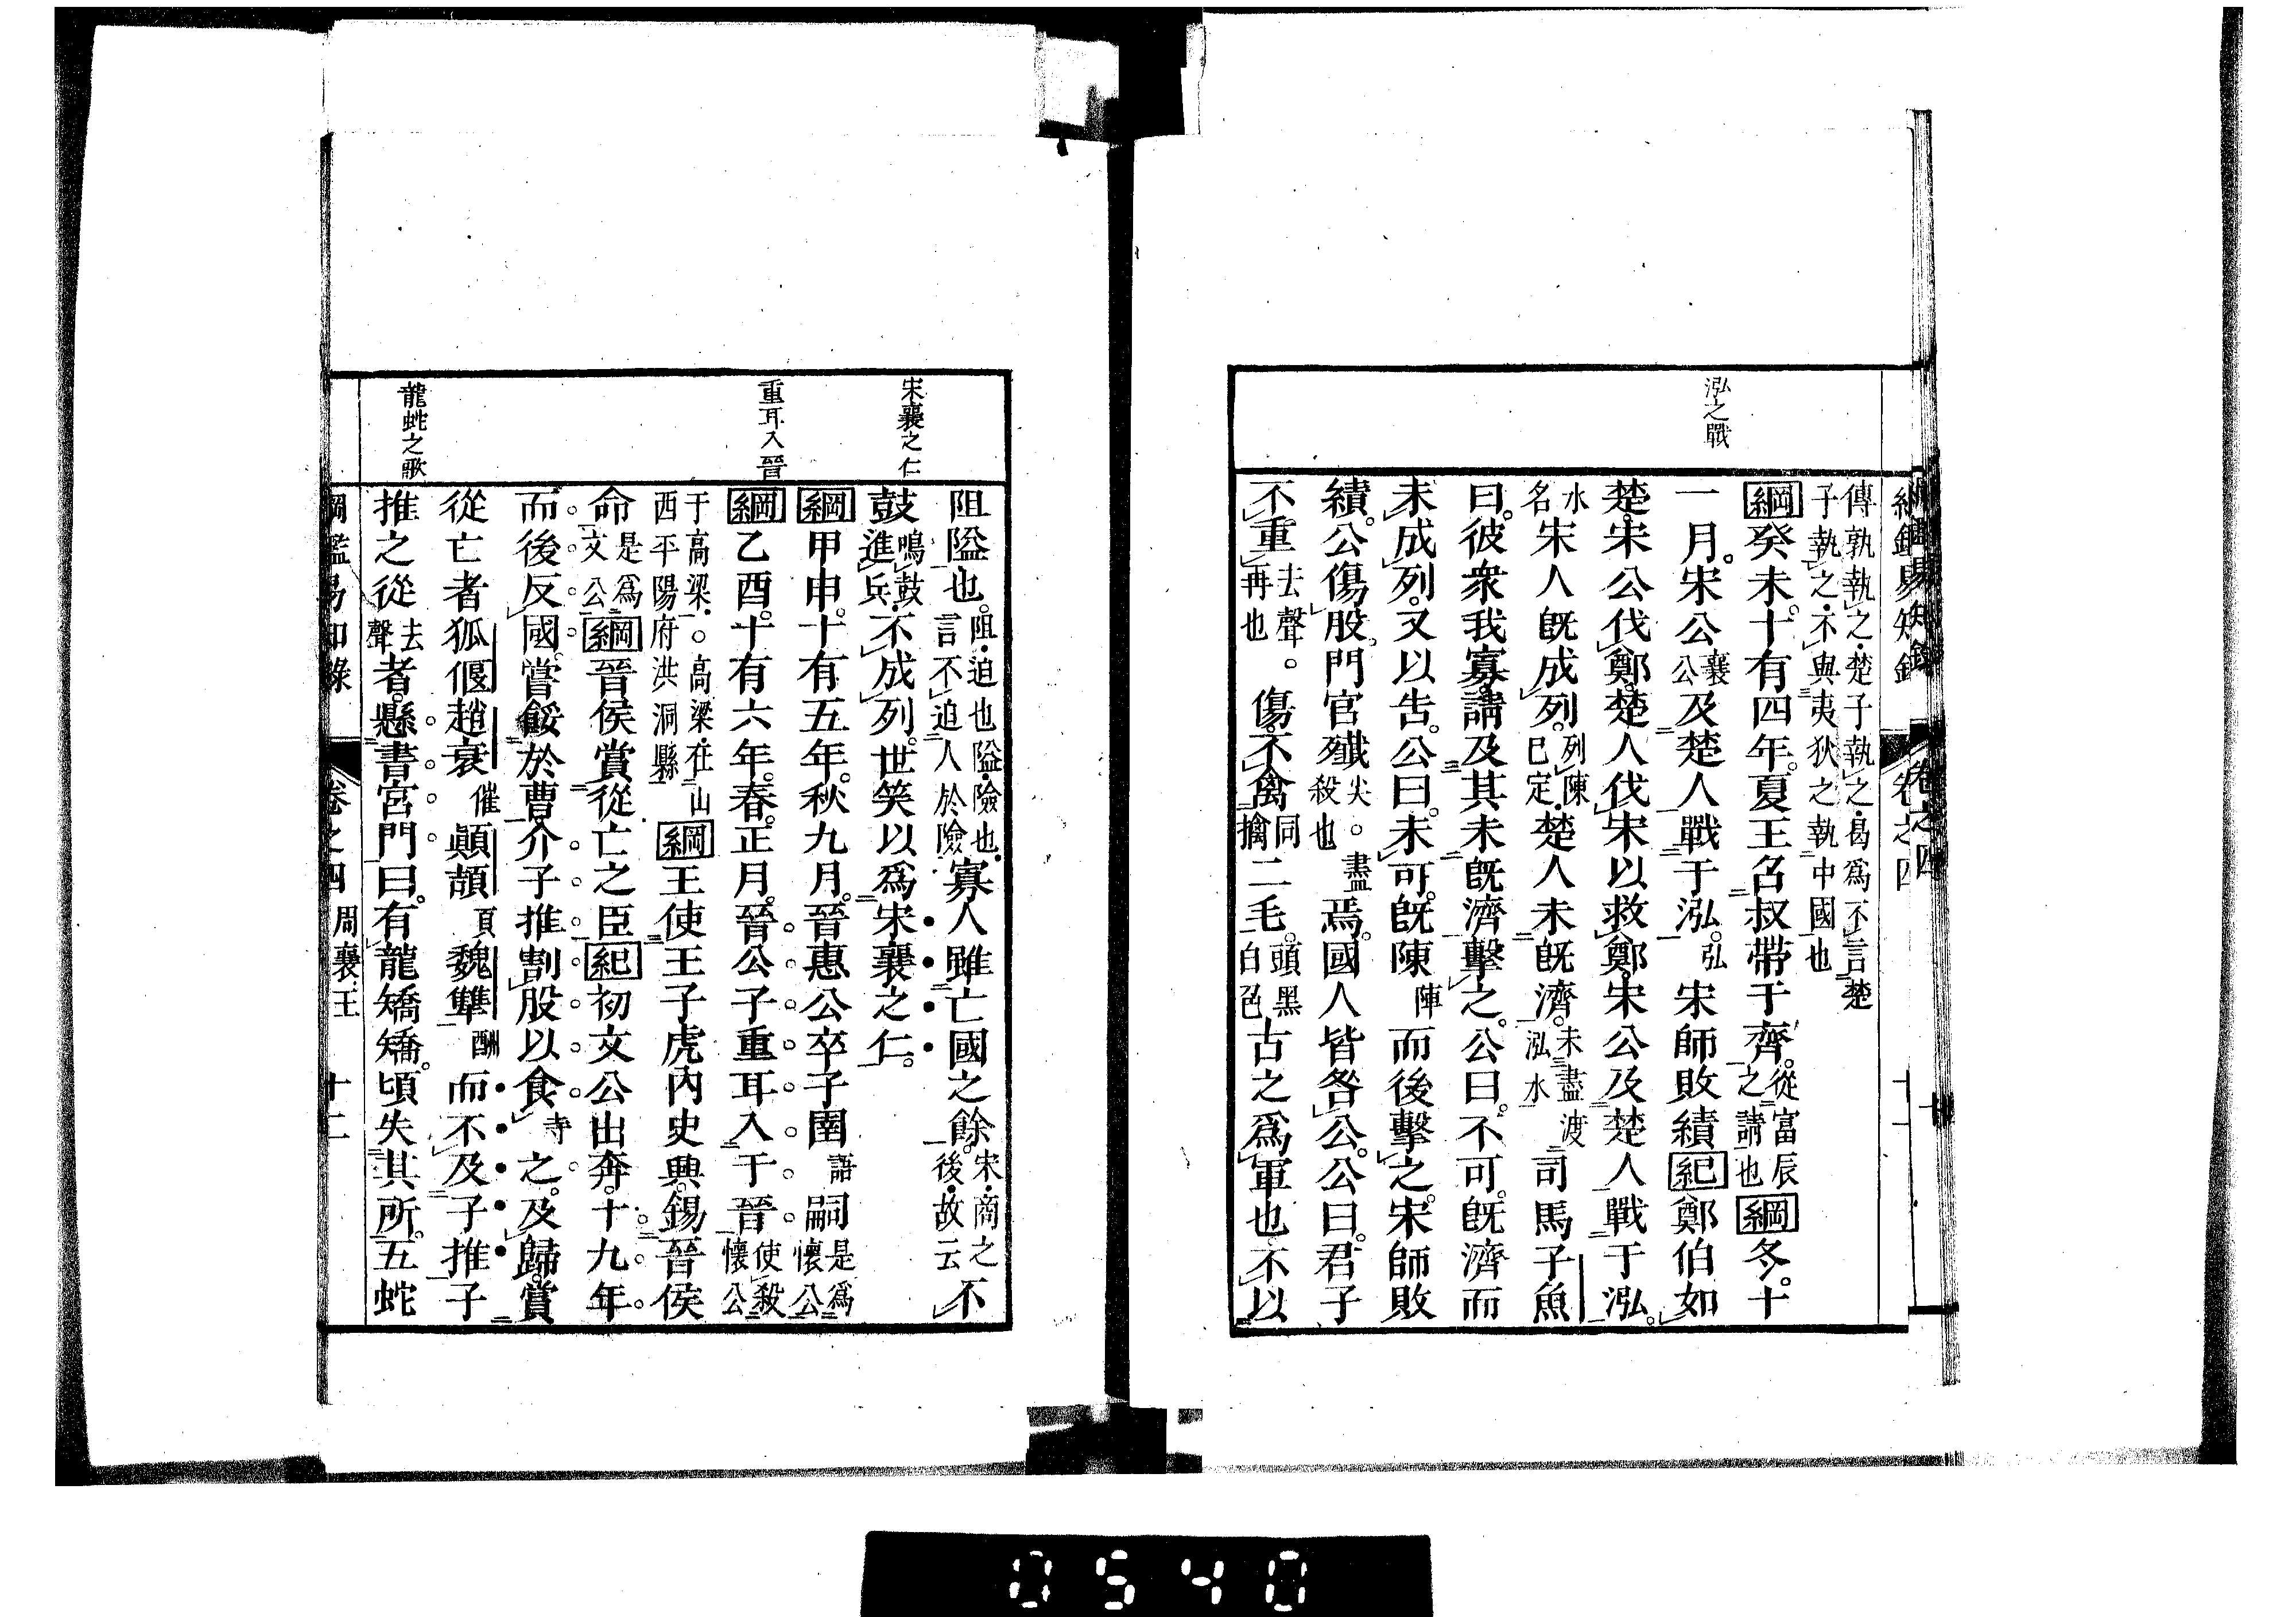 泓之戰
綱鑑易知錄 卷之四 十一
傳孰執之楚子執之曷爲不言楚
子執之不與夷狄之執中國也
綱癸未。十有四年。夏王召叔帶于齊。從富辰之請也綱冬。十
一月。宋公襄公及楚人戰于泓。弘宋師敗績紀鄭伯如
楚。宋公伐鄭。楚人伐宋以救鄭。宋公及楚人戰于泓。
水名宋人旣成列。列陳已定楚人未旣濟。未盡渡泓水司馬子魚
曰。彼衆我寡。請及其未旣濟擊之。公曰。不可。旣濟而
未成列。又以告。公曰。未可。旣陳陣而後擊之。宋師敗
績。公傷股。門官殲尖。盡殺也焉。國人皆咎公。公曰。君子
不重去聲。再也傷。不禽同擒二毛。頭黑白色古之爲軍也。不以
宋襄之仁
重耳入晉
龍蛇之歌
阻隘也。阻迫也隘險也言不迫人於險寡人雖亡國之餘。宋商之後故云不
鼓進鳴鼓兵不成列。世笑以爲宋襄之仁。
綱甲申。十有五年。秋九月。晉惠公卒子圉語嗣是爲懷公
綱乙酉。十有六年。春。正月。晉公子重耳入于晉使殺懷公
于高梁。高梁在山西平陽府洪洞縣綱王使王子虎內史興錫晉侯
命是爲文公綱晉侯賞從亡之臣紀初文公出奔。十九年。
而後反國。嘗餒於曹。介子推割股以食寺之。及歸。賞
從亡者狐偃趙衰催顚頡頁魏犨酬而不及子推子
推之從去聲者。懸書宮門曰。有龍矯矯。頃失其所。五蛇
綱鑑易知錄 卷之四 周襄王 十二
0540